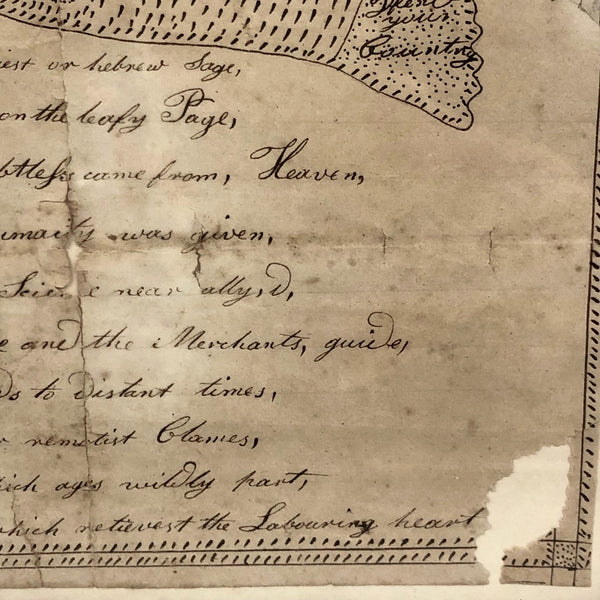 your
Country
or hebrew Sage,
on the leafy Page,
came from, Heaven,
was given,
near ally,d,
and the Merchants, guide,
to distant times,
remotist Clames,
ages wildly part,
which retievest the Labouring heart